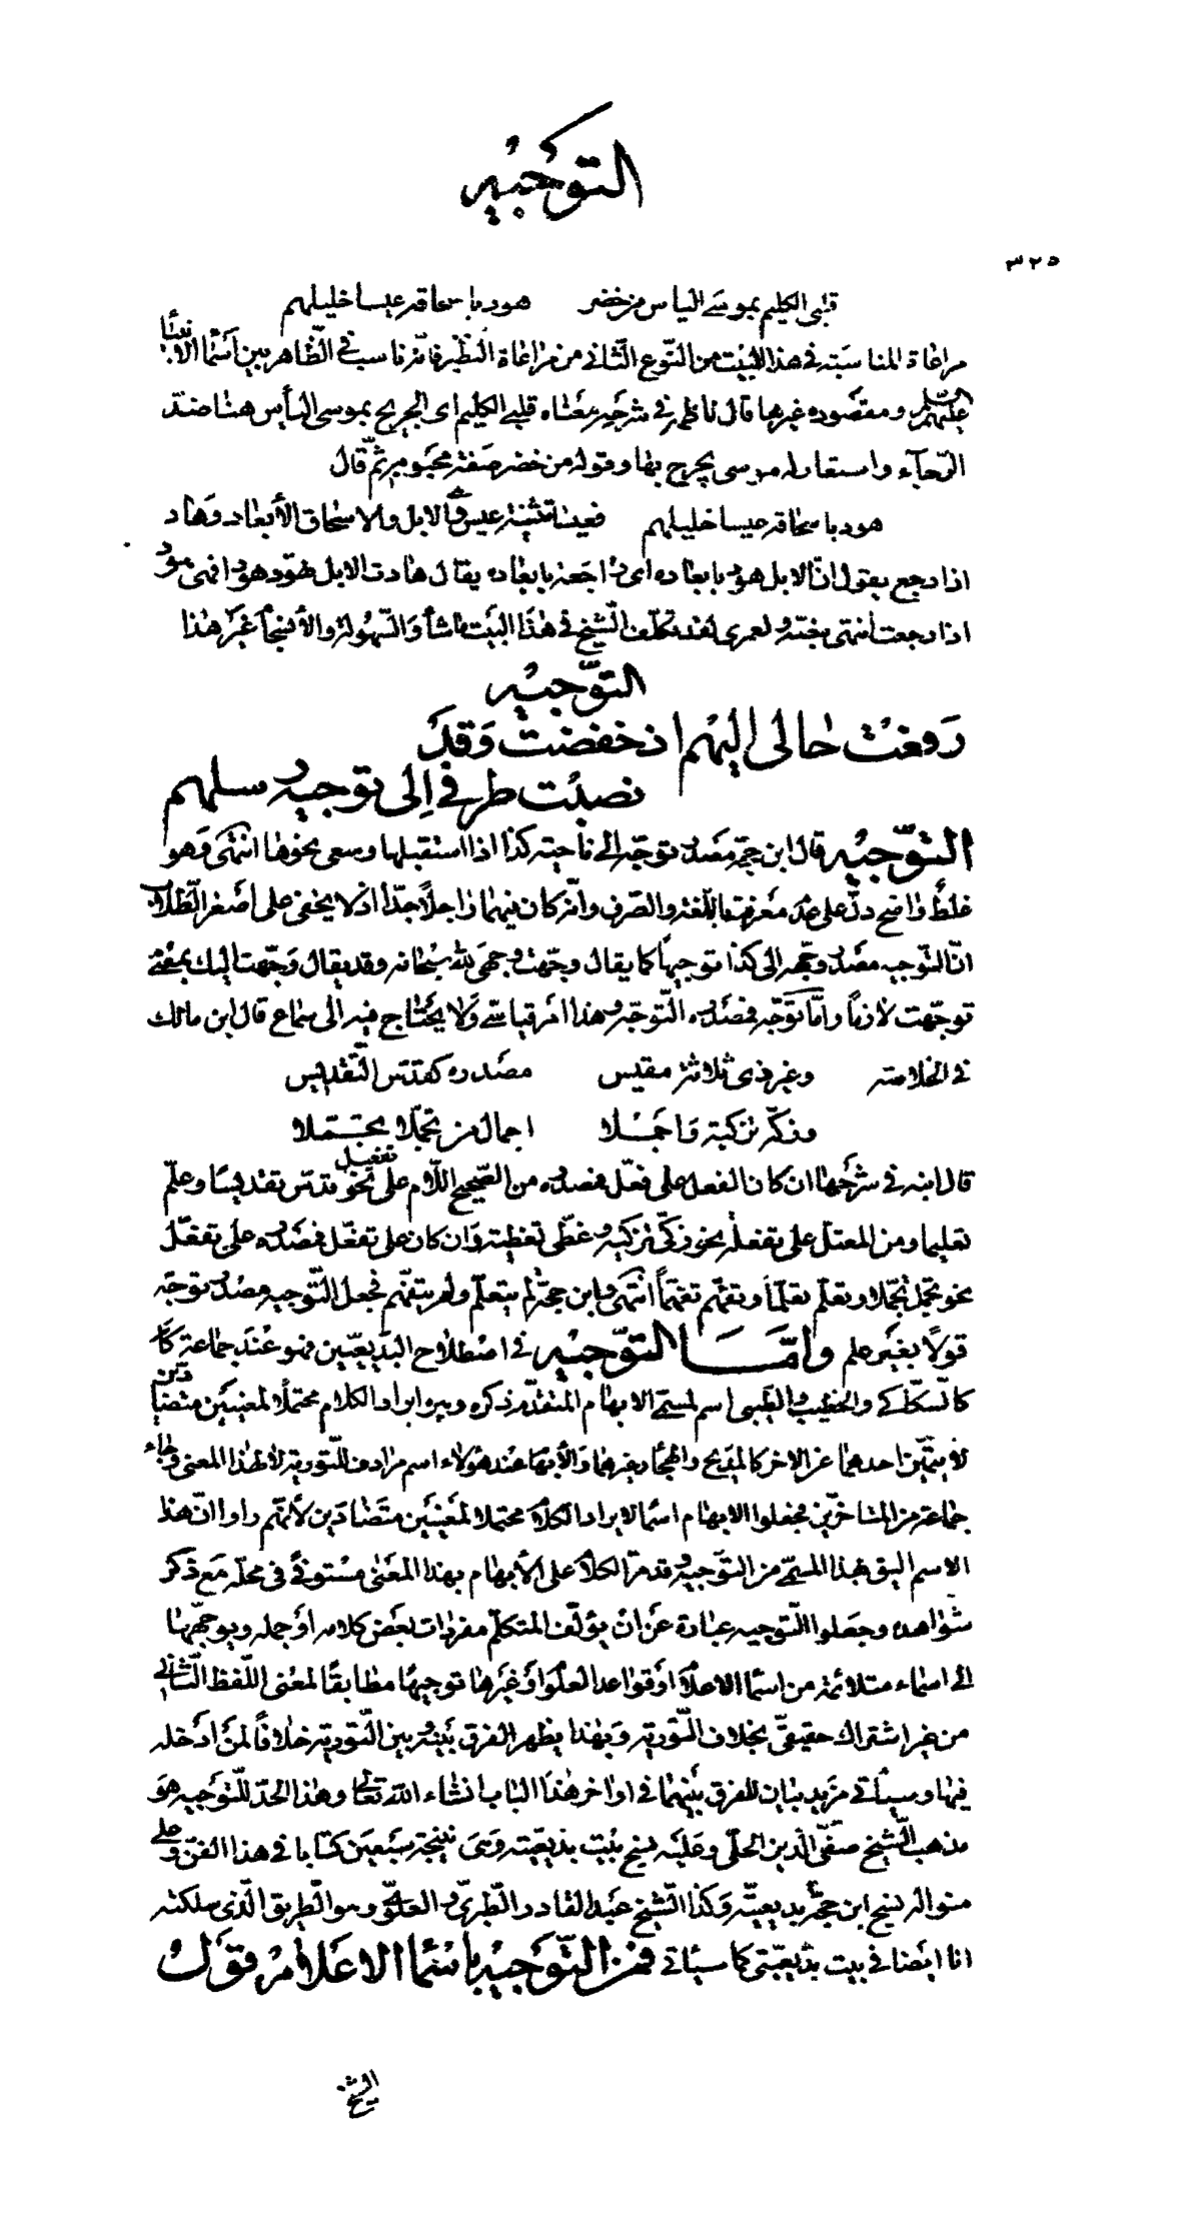 التوجيه
٣٢٥
قلبى الكليم بموسى الياس من خضر هود باسحاقه عيسا خليلهم
مراعاة المناسبة فى هذا البيت من النّوع الثّانى من مراعاة النظير فانّه ناسب فى الظّاهر بين أسماء الانبياء
عليهم السلم ومقصوده غيرها قال ناظمه فى شرحه معناه قلبى الكليم اى الجريح بموسى اليأس هنا ضدّ
الرّجاء واستعار له موسى يجرح بها وقوله من خضر صفة محبوبه ثمّ قال
هود باسحاقه عيسا خليلهم فعيسا تثنية عيس وهى الابل والاسحاق الأبعاد وهاد
اذا رجع يقول انّ الابل هود بابعاده اى راجعة بابعاده يقال هادت الابل تهود هودا فهى هود
اذا رجعت انتهى بنصّه ولعمرى لقد تكلّف الشّيخ فى هذا البيت ماشأ والسّهولة والأنسجام غير هذا
التّوجيه
رفعت حالى اليهم اذ خفضت وقد
نصبت طرفى إلى توجيه سلمهم
التّوجيه قال ابن حجّة مصدر توجّه الى ناحية كذا اذا استقبلها وسعى نحوها انتهى وهو
غلط واضح دلّ على عدم معرفته باللغة والصّرف وانّه كان بينهما راجلاً جدّا اذ لا يخفى على اصغر الطّلاب
انّ التّوجيه مصدر وجّه الى كذا توجيها كما يقال وجّهت وجهى لله سبحانه وقد يقال وجّهت اليك بمعنى
توجّهت لازماً وامّا توجّه فمصدره التّوجّه وهذا امر قياسىّ ولا يحتاج فيه الى سماع قال ابن مالك
فى الخلاصة وغير ذى ثلاثة مقيس مصدره كقدّس التّقديس
وزكّه تزكية واجملا اجمال من تجمّلا تجمّلا
قال ابنه فى شرحها ان كان الفعل على فعّل فمصدره من الصّحيح اللّام على تفعيل نحو قدّس تقديسا وعلّم
تعليما ومن المعتل على تفعلة نحو زكّى تزكية وغطّى تغطية وان كان على تفعّل فمصدره على تفعّل
نحو تجمّل تجمّلا وتعلّم تعلّماً وتفهّم تفهّماً انتهى وابن حجّة لم يتعلّم ولم يتفهّم فجعل التّوجيه مصدر توجّه
قولاً بغير علم وامّا التوّجيه فى اصطلاح البديعيّين فهو عند جماعة
كالسّكّاكى والخطيب والطّيبى اسم لمسمّى الابهام المتقدّم ذكره وهو ايراد الكلام محتملاً لمعنيين متضادّين
لا يتميّز احدهما عن الاخر كالمديح والهجاء وغيرهما والأبهام عند هؤلاء اسم مرادف للتّورية لا لهذا المعنى وجاء
جماعة من المتاخّرين فجعلوا الابهام اسما لايراد الكلام محتملا لمعنيين متضادّين لأنهم راوا انّ هذا
الاسم اليق بهذا المسمّى من التوّجيه وقد مرّ الكلام على الأبهام بهذا المعنى مستوفى فى محلّه مع ذكر
شواهده وجعلوا التّوجيه عبارة عن ان يؤلّف المتكلّم مفردات بعض كلامه او جمله ويوجّهها
الى اسماء متلائمة من اسماء الاعلام او قواعد العلوم او غيرها توجيها مطابقا لمعنى اللّفظ الثّانى
من غير اشتراك حقيقىّ بخلاف التّورية وبهذا يظهر الفرق بينه وبين التّورية خلافاً لمن ادخله
فيها وسيأتى مزيد بيان للفرق بينهما فى اواخر هذا الباب انشاء الله تعالى وهذا الحدّ للتّوجيه هو
مذهب الشّيخ صفىّ الدّين الحلّى وعليه نسج بيت بديعيّته وهى نتيجة سبعين كتابا فى هذا الفنّ وعلى
منواله نسج ابن حجّة بديعيّته وكذا الشّيخ عبد القادر الطّبرىّ والعلوىّ وهو الطّريق الّذى سلكته
انا ايضا فى بيت بديعيّتى كما سيأتى فمن التّوجيه باسماء الاعلام قول
الشيخ